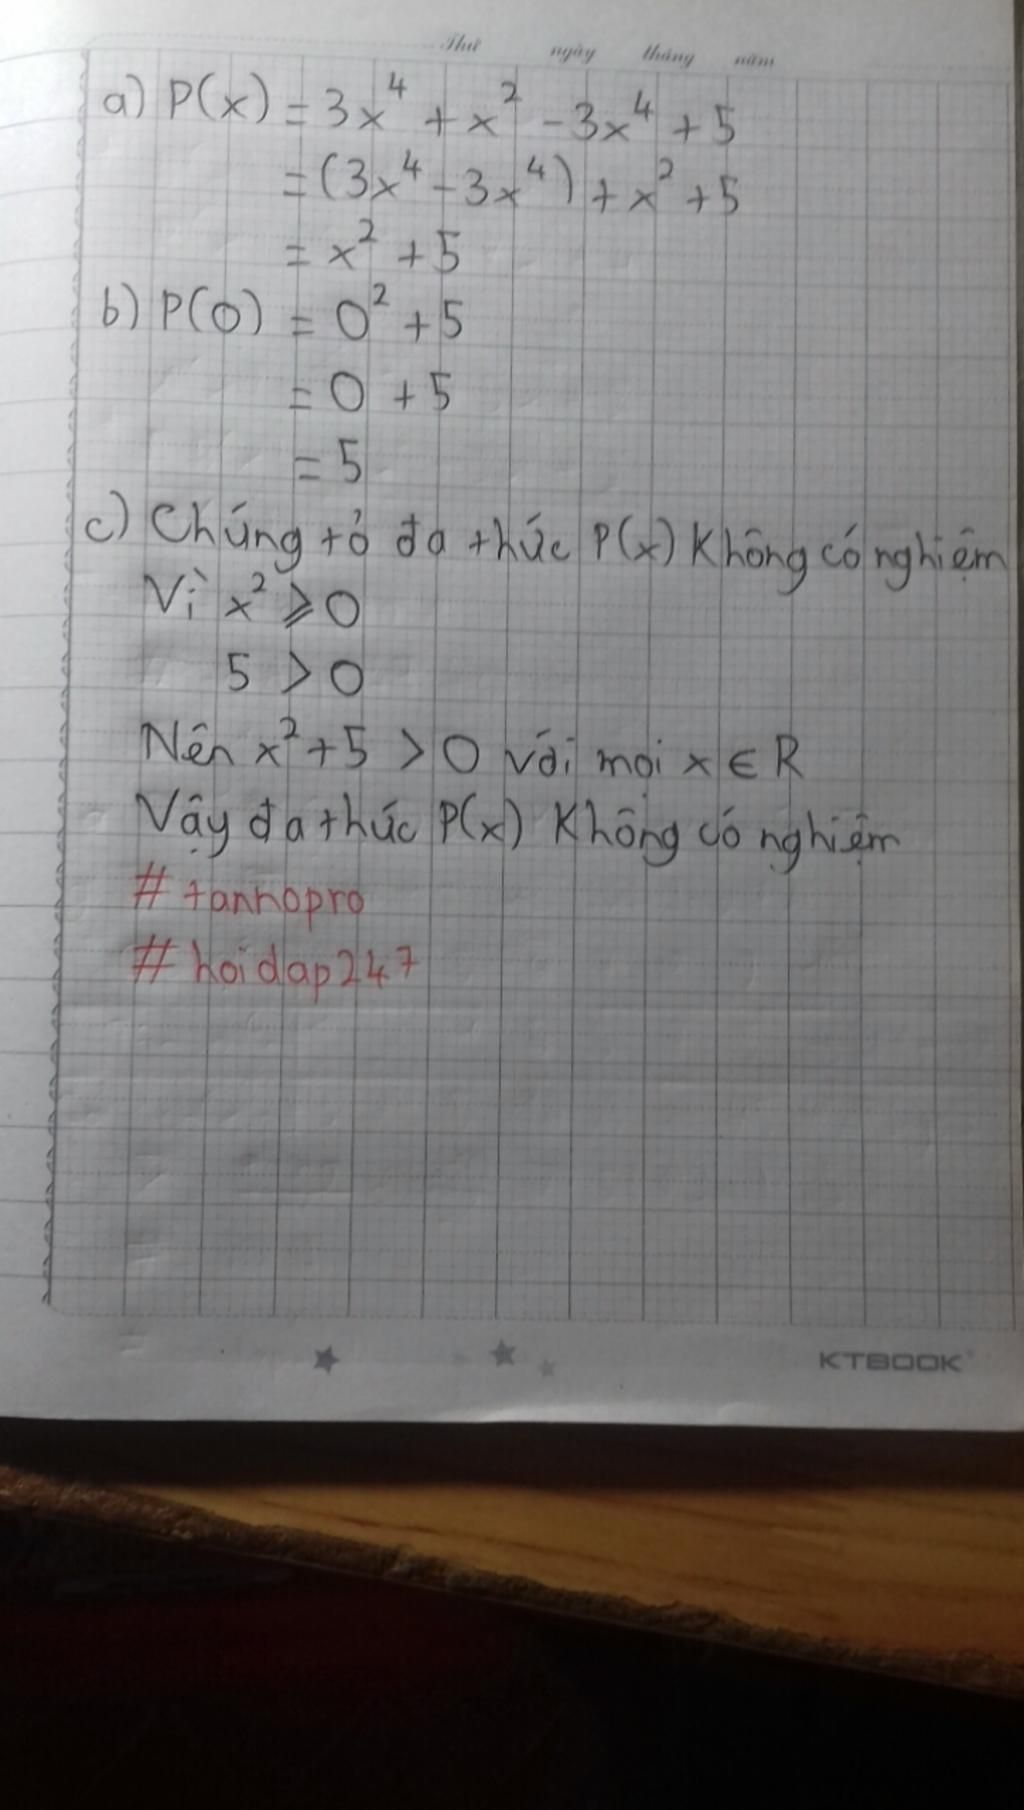 Thứ ngày tháng năm
a) P(x) = 3x⁴ + x² - 3x⁴ + 5
= (3x⁴ - 3x⁴) + x² + 5
= x² + 5
b) P(0) = 0² + 5
= 0 + 5
= 5
c) Chứng tỏ đa thức P(x) Không có nghiệm
Vì x² ⩾ 0
5 > 0
Nên x² + 5 > 0 với mọi x ∈ R
Vậy đa thức P(x) Không có nghiệm
# tannopro
# hoidap247
KTBOOK